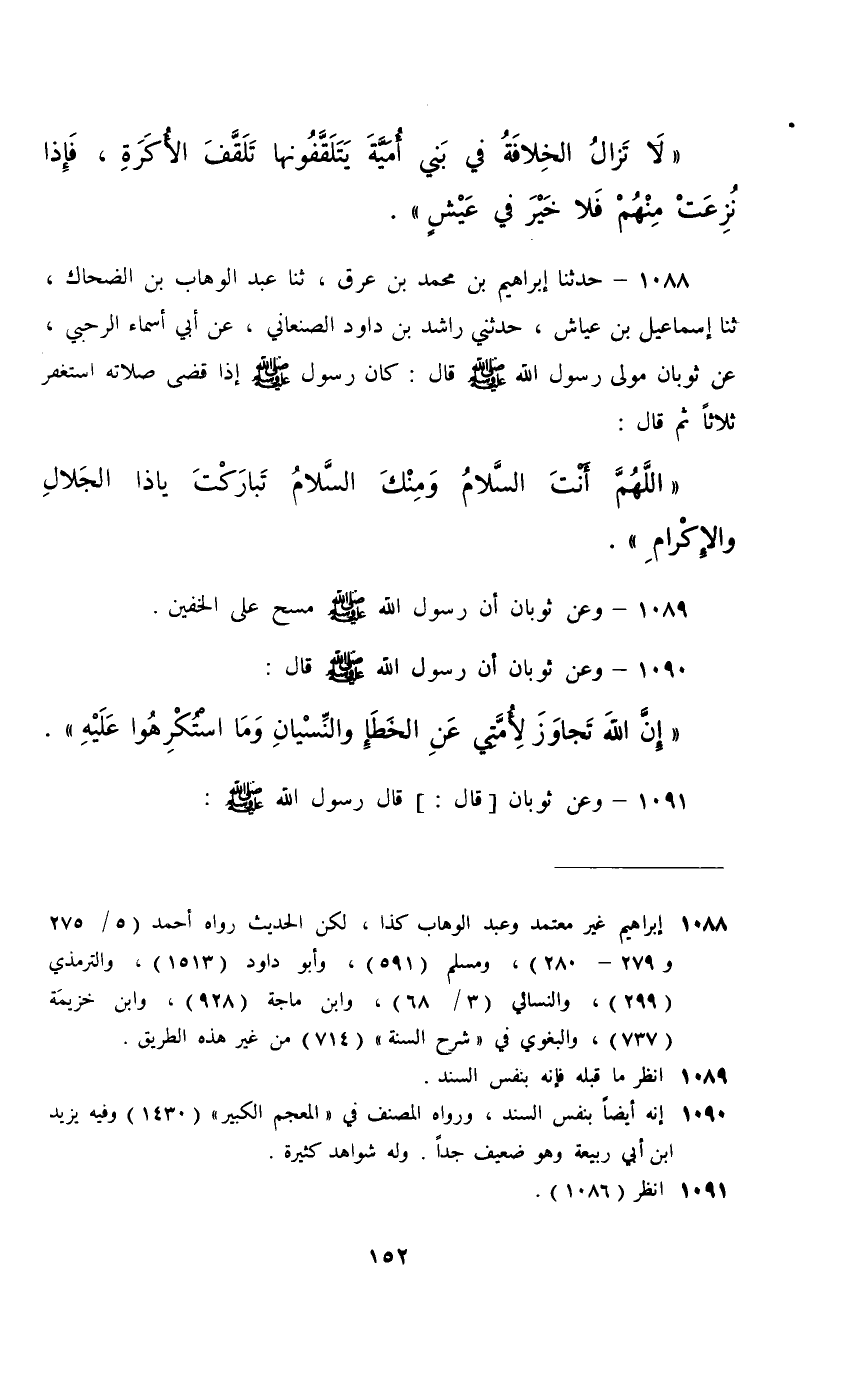 « لَا تَزالُ الخِلافَةُ في بَني أُمَيَّةَ يَتَلَقَّفُونها تَلَقَّفَ الأُكَرَةِ ، فَإِذا
نُزِعَتْ مِنْهُمْ فَلا خَيْرَ في عَيْشٍ » .
١٠٨٨ – حدثنا إبراهيم بن محمد بن عرق ، ثنا عبد الوهاب بن الضحاك ،
ثنا إسماعيل بن عياش ، حدثني راشد بن داود الصنعاني ، عن أبي أسماء الرحبي ،
عن ثوبان مولى رسول الله ﷺ قال : كان رسول ﷺ إذا قضى صلاته استغفر
ثلاثاً ثم قال :
« اللَّهُمَّ أَنْتَ السَّلامُ وَمِنْكَ السَّلامُ تَبارَكْتَ ياذا الجَلالِ
والإِكْرامِ » .
١٠٨٩ – وعن ثوبان أن رسول الله ﷺ مسح على الخفين .
١٠٩٠ – وعن ثوبان أن رسول الله ﷺ قال :
« إِنَّ اللهَ تَجاوَزَ لِأُمَّتِي عَنِ الخَطَإِ والنِّسْيانِ وَمَا اسْتُكْرِهُوا عَلَيْهِ » .
١٠٩١ – وعن ثوبان [ قال : ] قال رسول الله ﷺ :
١٠٨٨ إبراهيم غير معتمد وعبد الوهاب كذا ، لكن الحديث رواه أحمد ( ٥ / ٢٧٥
و ٢٧٩ – ٢٨٠ ) ، ومسلم ( ٥٩١ ) ، وأبو داود ( ١٥١٣ ) ، والترمذي
( ٢٩٩ ) ، والنسائي ( ٣ / ٦٨ ) ، وابن ماجة ( ٩٢٨ ) ، وابن خزيمَة
( ٧٣٧ ) ، والبغوي في « شرح السنة » ( ٧١٤ ) من غير هذه الطريق .
١٠٨٩ انظر ما قبله فإنه بنفس السند .
١٠٩٠ إنه أيضاً بنفس السند ، ورواه المصنف في « المعجم الكبير » ( ١٤٣٠ ) وفيه يزيد
ابن أبي ربيعة وهو ضعيف جداً . وله شواهد كثيرة .
١٠٩١ انظر ( ١٠٨٦ ) .
١٥٢